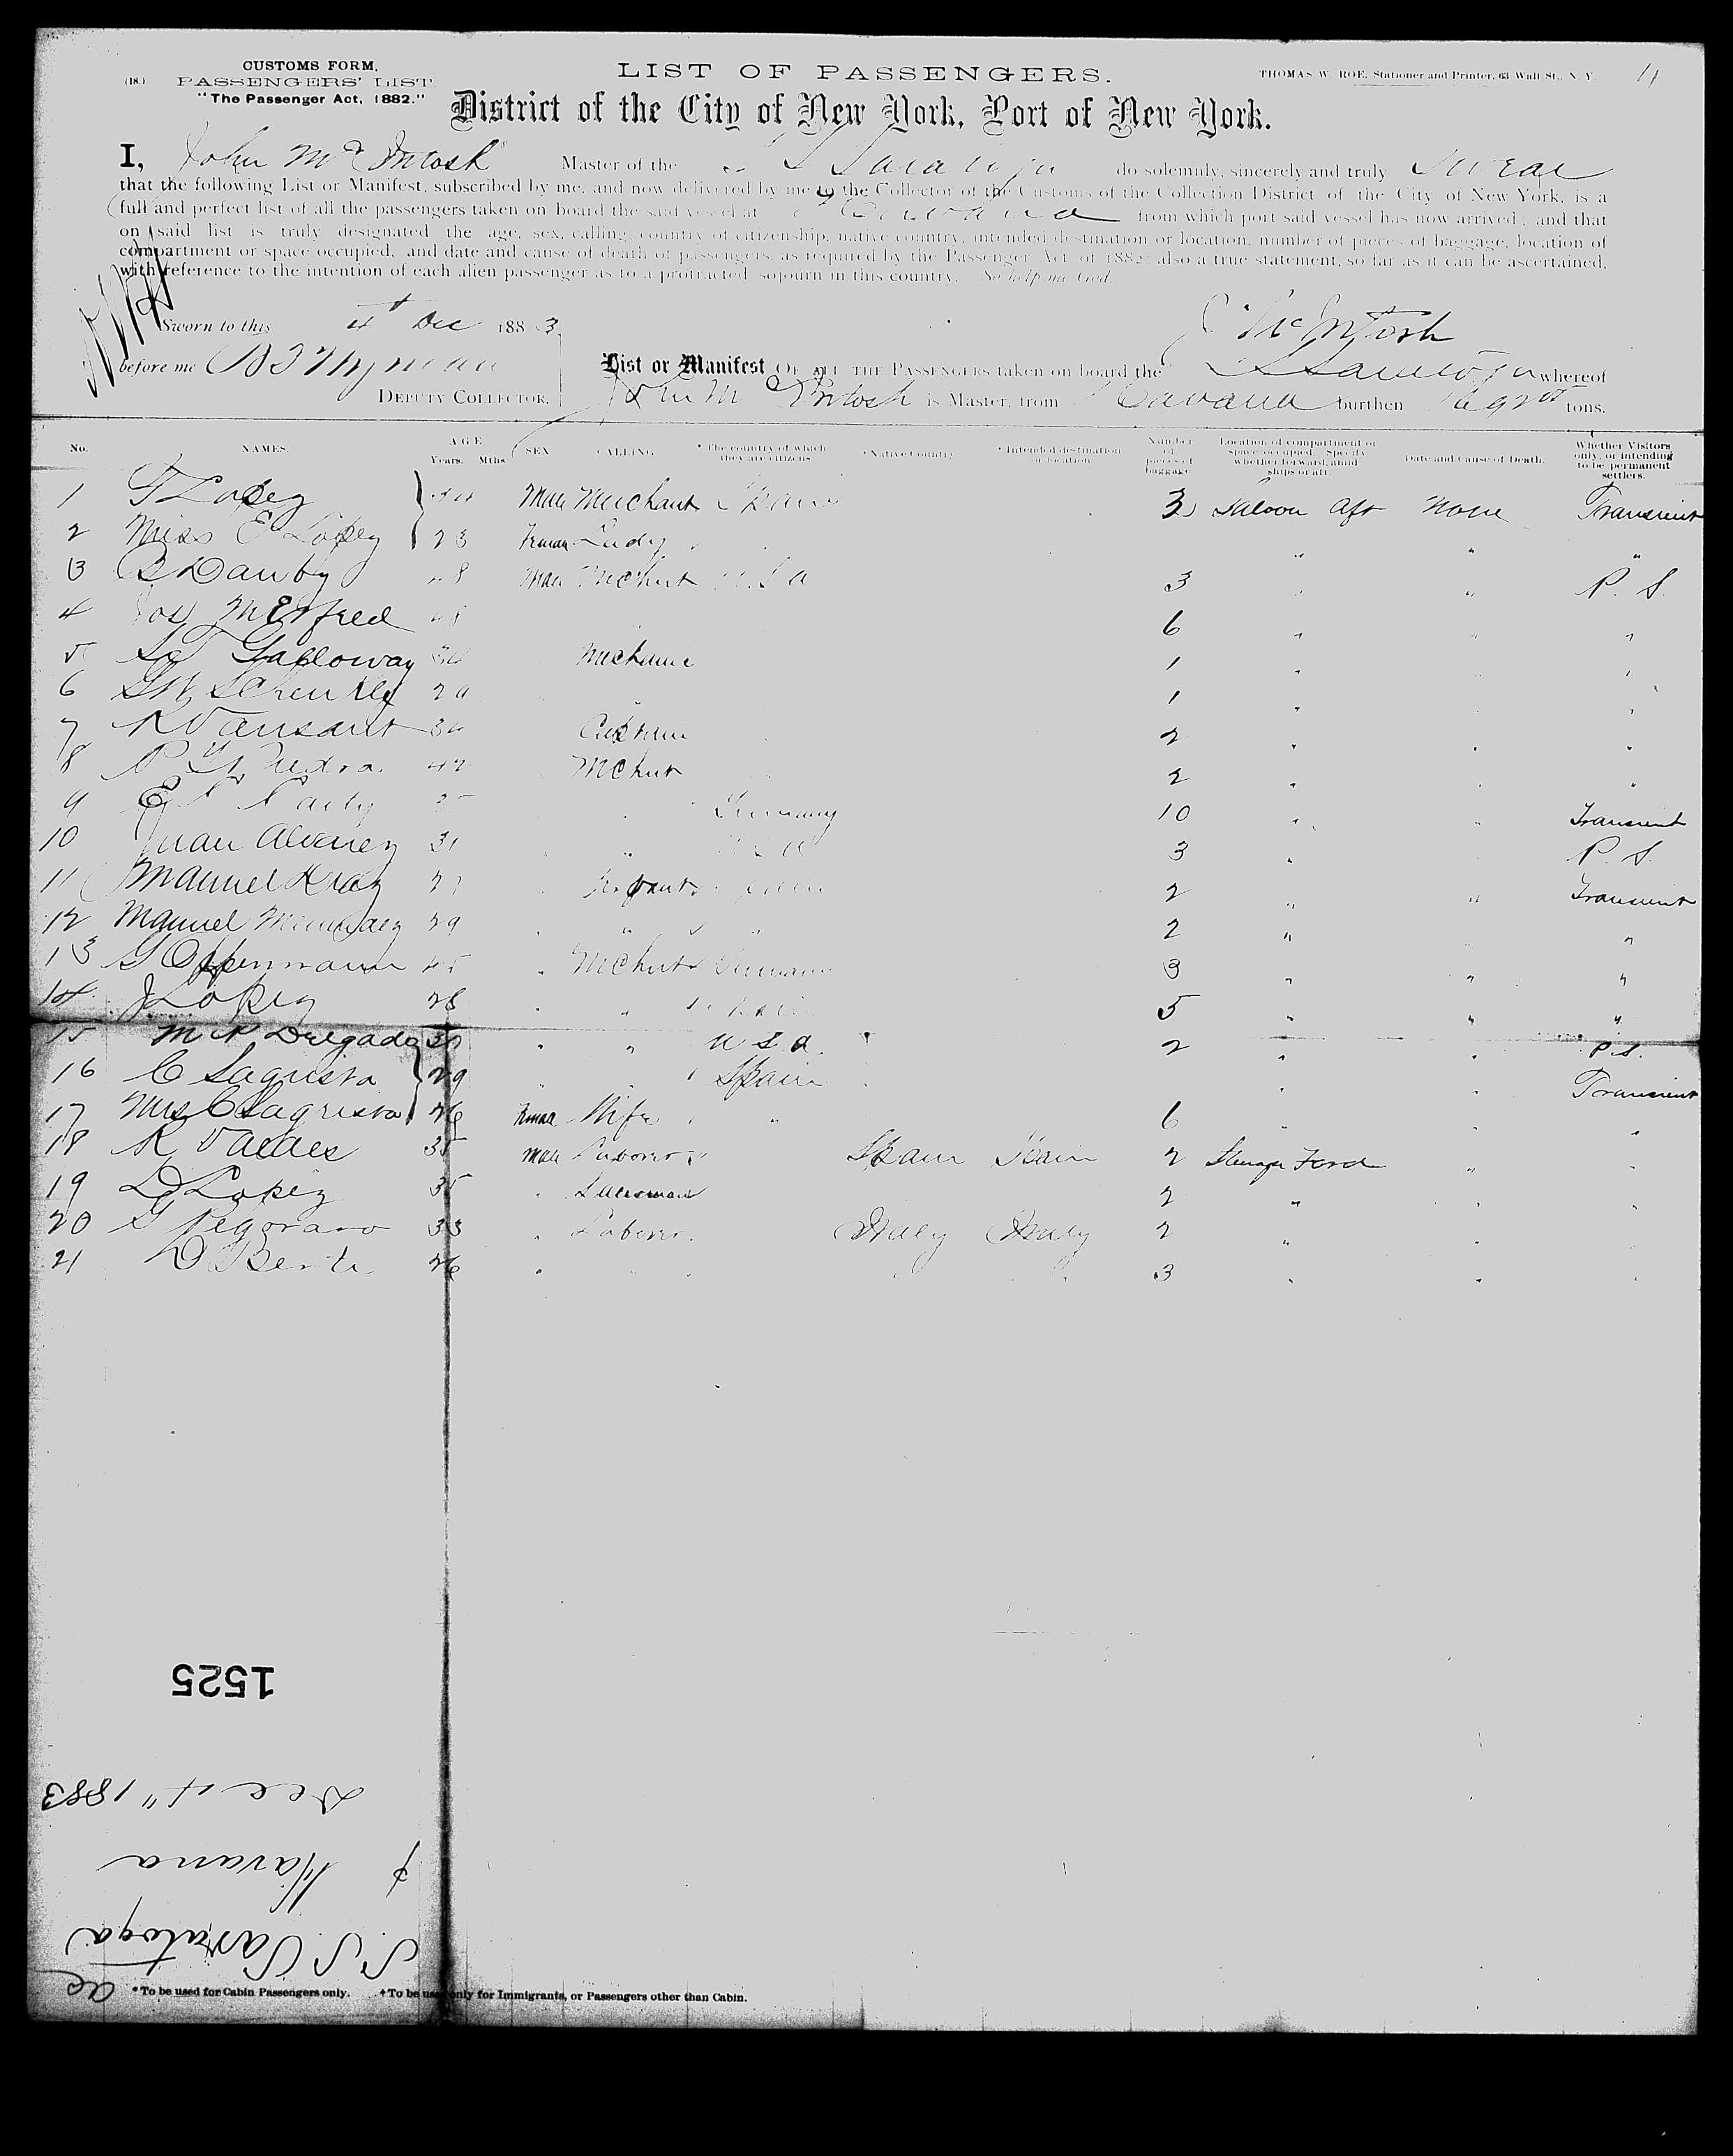 CUSTOMS FORM.
(18.) PASSENGERS' LIST.
"The Passenger Act, 1882."
LIST OF PASSENGERS.
THOMAS W. ROE, Stationer and Printer, 63 Wall St., N. Y.
11
District of the City of New York, Port of New York.
I, John McIntosh Master of the S S Saratoga do solemnly, sincerely and truly Swear
that the following List or Manifest, subscribed by me, and now delivered by me to the Collector of the Customs of the Collection District of the City of New York, is a
full and perfect list of all the passengers taken on board the said vessel at Havana from which port said vessel has now arrived; and that
on said list is truly designated the age, sex, calling, country of citizenship, native country, intended destination or location, number of pieces of baggage, location of
compartment or space occupied, and date and cause of death of passengers, as required by the Passenger Act of 1882; also a true statement, so far as it can be ascertained,
with reference to the intention of each alien passenger as to a protracted sojourn in this country. So help me God.
Sworn to this 4th Dec 1883
J McIntosh
before me
DEPUTY COLLECTOR.
List or Manifest OF ALL THE PASSENGERS taken on board the S S Saratoga whereof
John McIntosh is Master, from Havana burthen tons.
No. NAMES. AGE Years. Mths. SEX. CALLING. * The country of which they are citizens. + Native Country + Intended destination or location. Number of pieces of baggage Location of compartment or space occupied. Specify whether forward, amid ships or aft. Date and Cause of Death. Whether Visitors only, or intending to be permanent settlers.
1 F Lopez Male Merchant Spain 3 Saloon Aft None Transient
2 Miss E Lopez 23 Female Lady " " "
3 Danby 48 Male Mchnt U.S.A 3 " " P. S.
4 6 " " "
5 Galloway Mechanic 1 " " "
6 29 1 " "
7 R Vansant 2 " " "
8 42 Mchnt 2 " " "
9 Germany 10 " " Transient
10 Juan Alvarez 31 " U S A 3 " P. S.
11 Manuel Diaz 2 " " Transient
12 Manuel Menendez 29 " " " 2 " " "
13 G Oppermann 45 " Mchnt Germany 3 " " "
14 J Lopez 28 " " Spain 5 " " "
15 M P Delgado " " U S A. 2 " " P. S.
16 C Sagrista 29 " " Spain " " Transient
17 Mrs C Sagrista 26 Female Wife " 6 " " "
18 R Valdes 35 Male Laborer " Spain Spain 2 Steerage Ford " "
19 D Lopez 35 " Salesman 2 " " "
20 G Pegoraro 33 " Laborer. Italy Italy 2 " " "
21 D Berti 26 " " " " 3 " " "
1525
Dec 4" 1883
f Havana
S.S. Saratoga
* To be used for Cabin Passengers only. + To be used only for Immigrants, or Passengers other than Cabin.